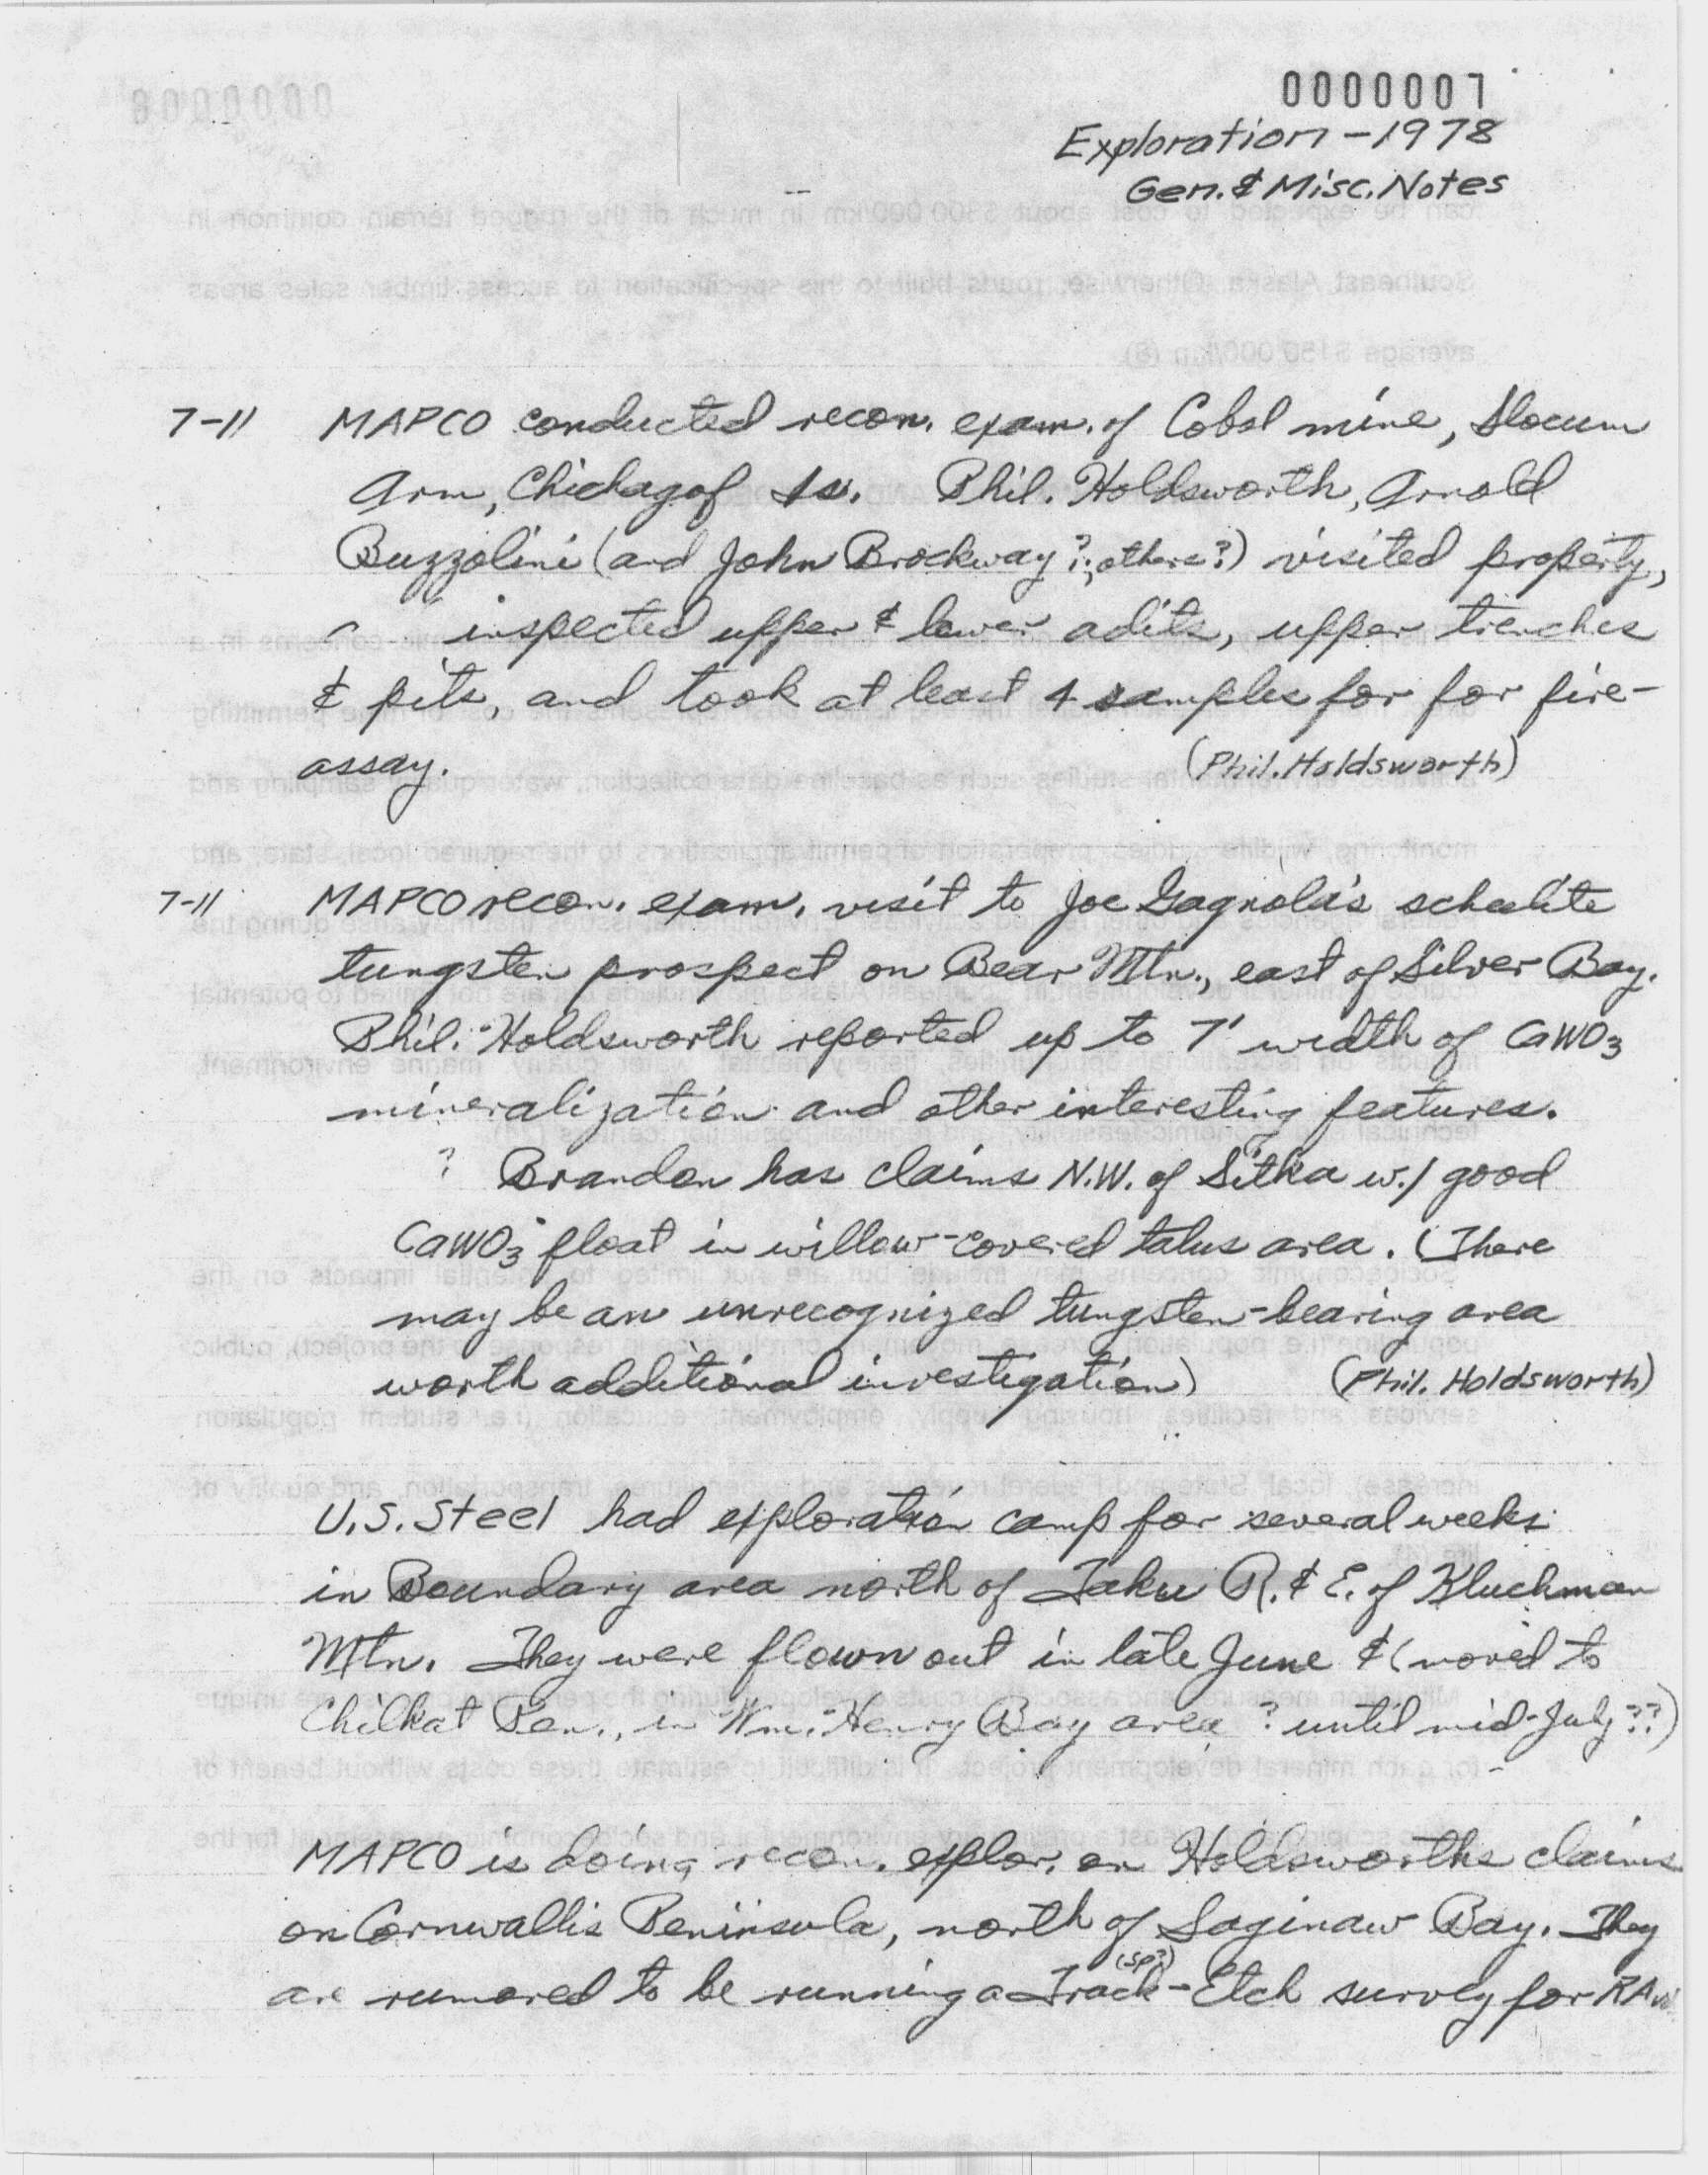 0000007
Exploration - 1978
Gen. & Misc. Notes
7-11 MAPCO conducted recon. exam. of Cobol mine, Slocum
Arm, Chichagof Is. Phil. Holdsworth, Arnold
Buzzolini (and John Brockway?; others?) visited property,
inspected upper & lower adits, upper trenches
& pits, and took at least 4 samples for for fire-
assay. (Phil. Holdsworth)
7-11 MAPCO recon. exam. visit to Joe Gagnola's scheelite
tungsten prospect on Bear Mtn., east of Silver Bay.
Phil. Holdsworth reported up to 7' width of CaWO3
mineralization and other interesting features.
? Brandon has claims N.W. of Sitka w./ good
CaWO3 float in willow-covered talus area. (There
may be an unrecognized tungsten-bearing area
worth additional investigation) (Phil. Holdsworth)
U.S. Steel had exploration camp for several weeks
in Boundary area north of Taku R. & E. of Kluchman
Mtn. They were flown out in late June & (moved to
Chilkat Pen., in Wm. Henry Bay area ? until mid-July ??)
MAPCO is doing recon. explor. on Holdsworths claims
on Cornwallis Peninsula, north of Saginaw Bay. They
(sp?)
are rumored to be running a Track-Etch survey for